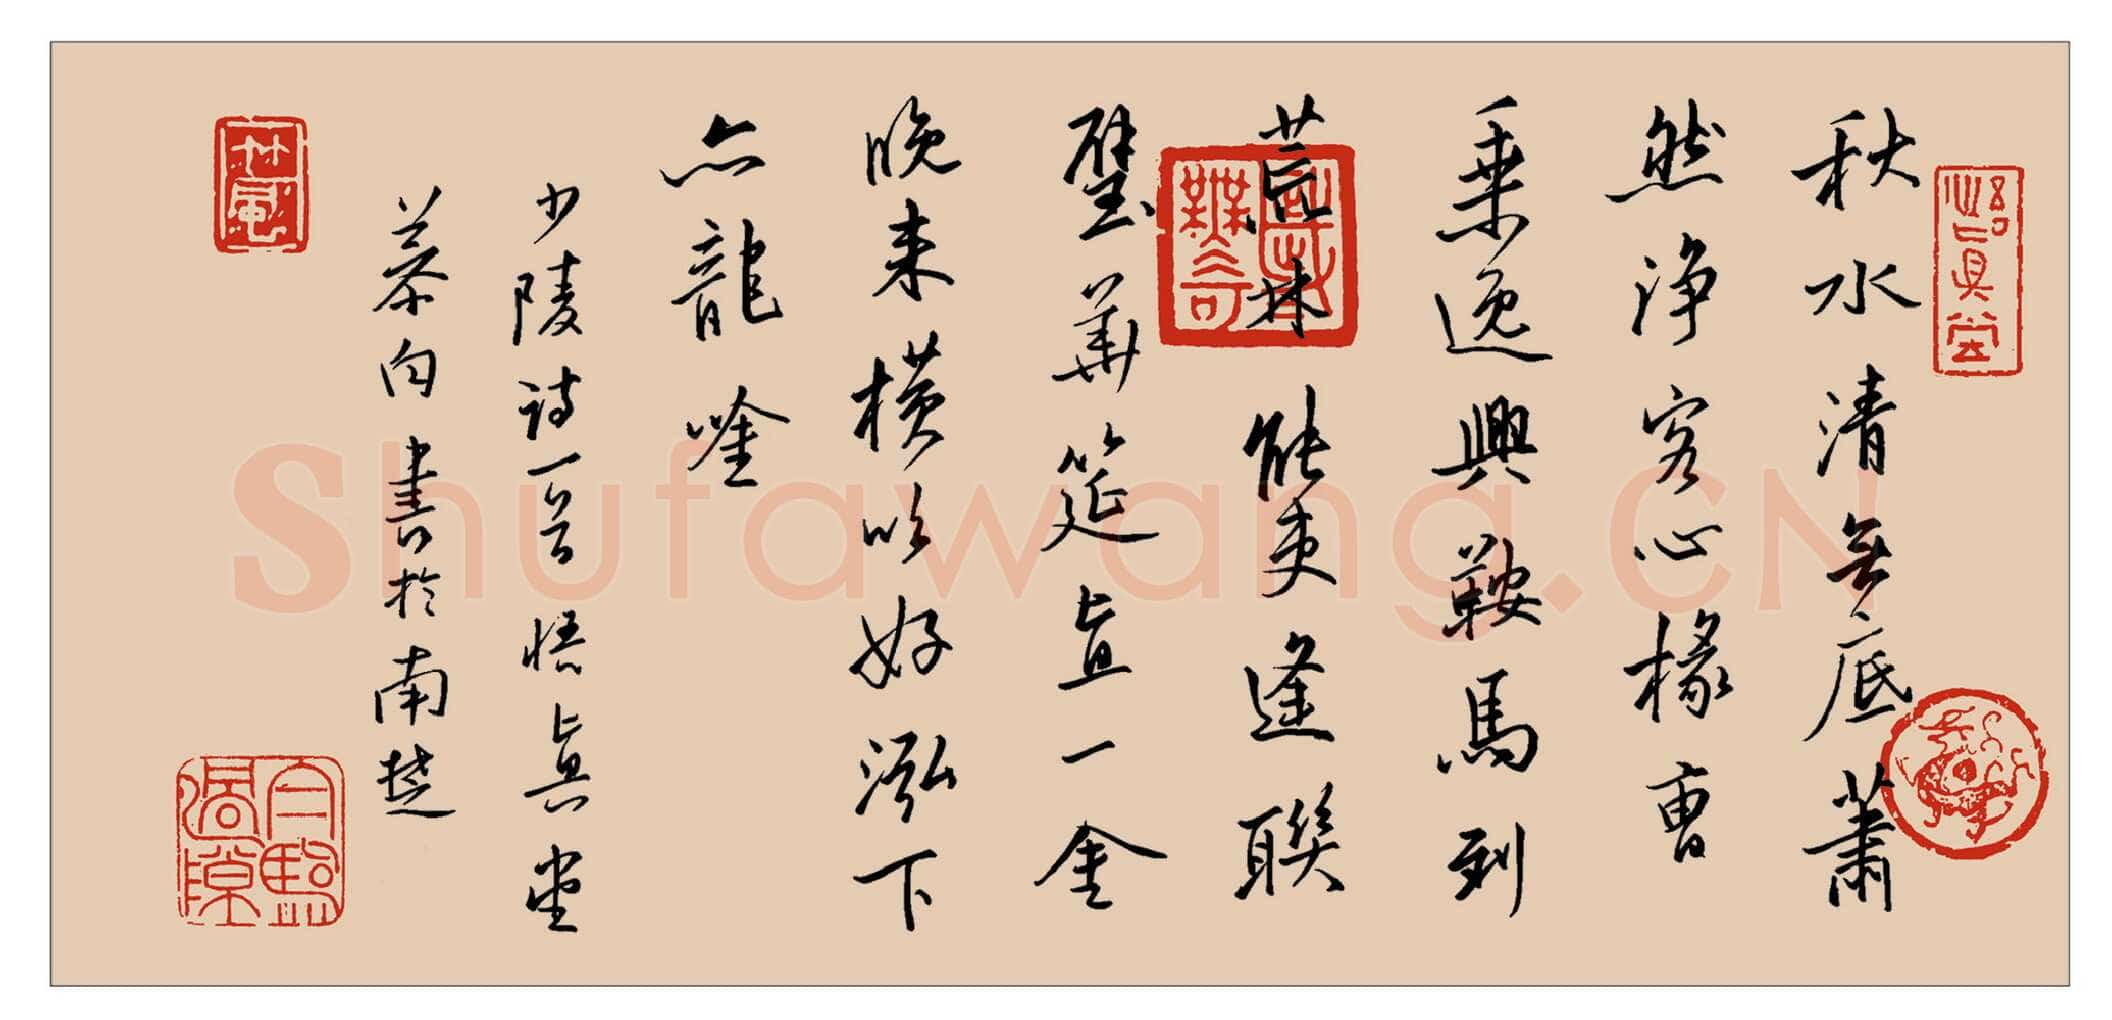 悟真堂
秋水清無底蕭
然浄客心掾曹
乘逸興鞍馬到
荒林能吏逢聯
璧華筵直一金
晚来横吹好泓下
亦龍唫
少陵詩一首 悟真堂
慕白書於南楚
Shufawang.CN